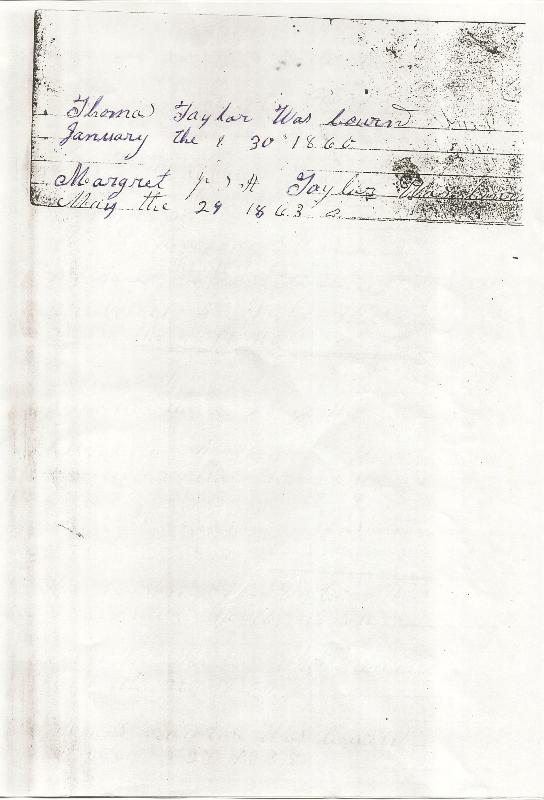 Thomas Taylor Was bourn
January the 30 1860
Margret A Taylor Was
May the 29 1863